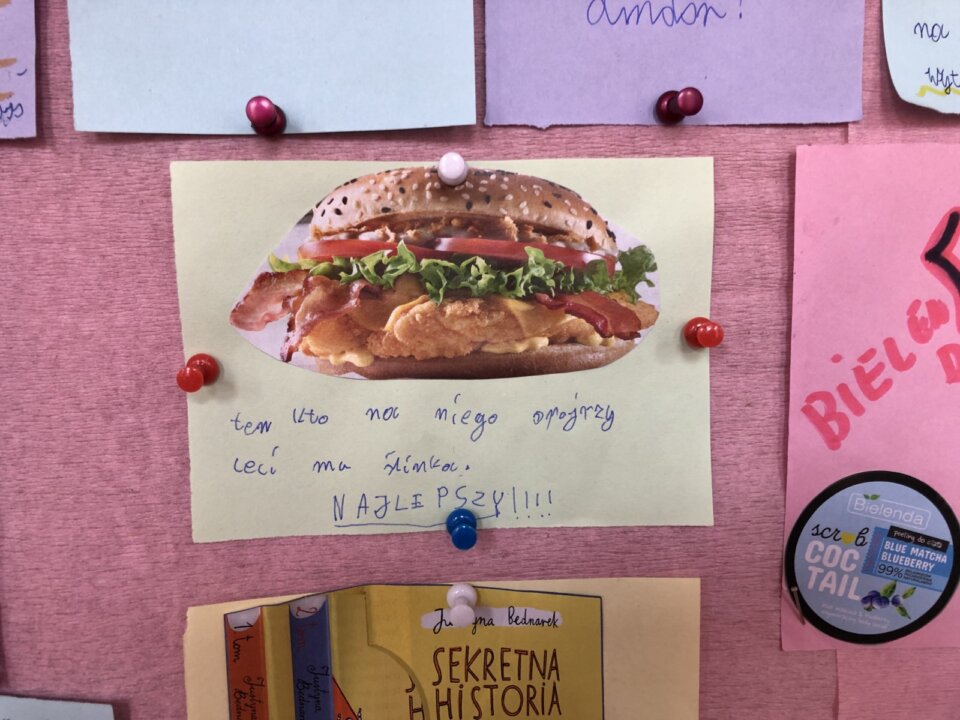 na
ten kto na niego spojrzy
leci mu ślinka.
NAJLEPSZY!!!!
BIELEN
D
Bielenda
scrub
peeling do ciała
COC
TAIL
BLUE MATCHA
BLUEBERRY
99%
1 tom
2 tom
Justyna
Justyna Bednarek
SEKRETNA
HISTORIA